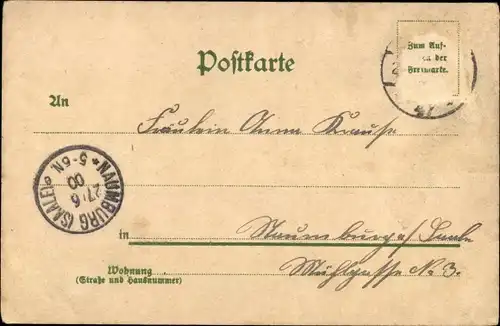 Postkarte
Zum Auf-
der
Freimarke.
An
Fräulein Anna Krause
NAUMBURG (SAALE)
27.6
00
5-6N
in Naumburg a/ Saale
Wohnung
(Straße und Hausnummer)
Mühlgasse No 3.